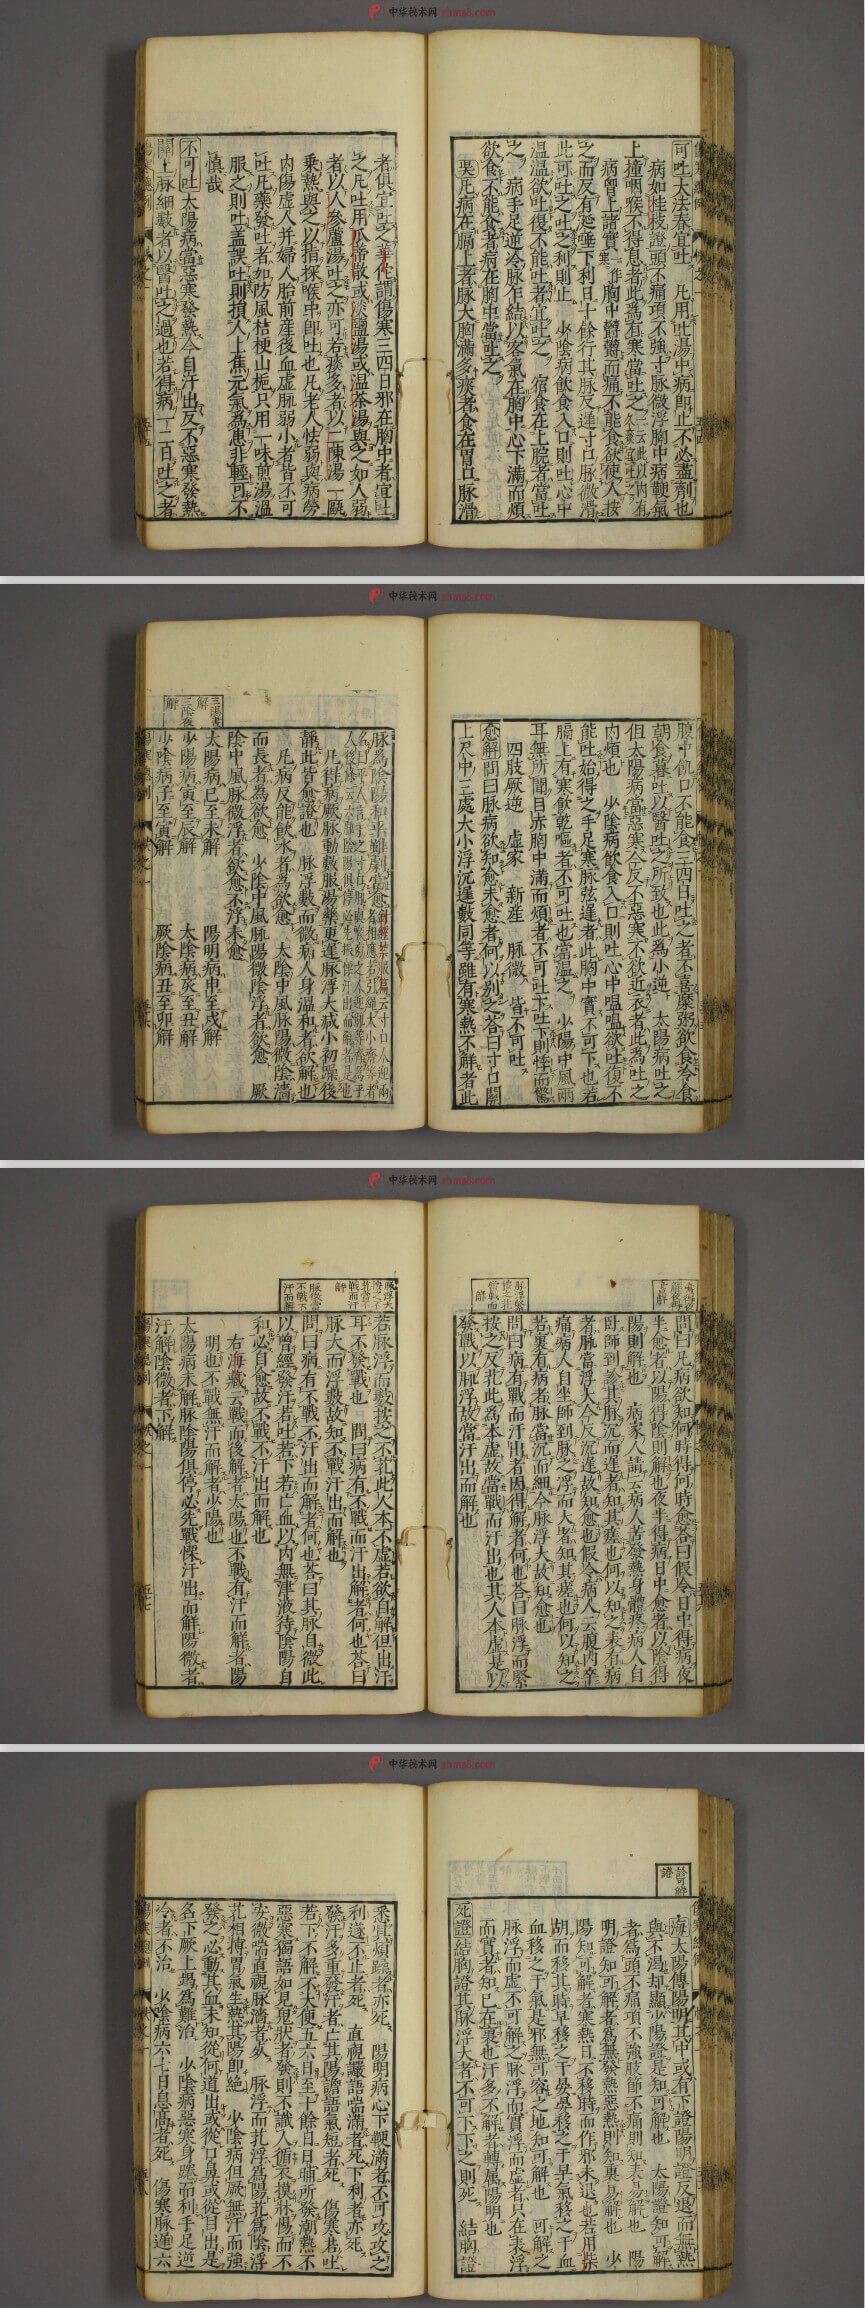 中华秘术网 zhms8.com
可吐大法春宜吐 凡用吐湯中病即止不必盡劑也
病如桂枝證頭不痛項不強寸脉微浮胸中痞鞕氣
上撞咽喉不得息者此爲有寒當吐之
病胸上諸實胸中鬱鬱而痛不能食欲使人按
之而反有涎唾下利日十餘行其脉反遲寸口脉微滑
此可吐之吐之利則止 少陰病飲食入口則吐心中
温温欲吐復不能吐者宜吐之 宿食在上脘者當吐
之 病手足逆冷脉乍結以客氣在胸中心下滿而煩
欲食不能食者病在胸中當吐之
凡病在膈上者脉大胸滿多痰者食在胃口脉滑
者俱宜吐之華佗謂傷寒三四日邪在胸中者宜吐
之凡吐用瓜蒂散或淡鹽湯或温茶湯與之如人弱
者以人參蘆湯吐之亦可若痰多者以二陳湯一甌
乗熱與之以指探喉中即吐也凡老人怯弱與病勞
内傷虛人并婦人胎前産後血虛脉弱小者皆不可
吐凡藥發吐者如防風桔梗山梔只用一味煎湯温
服之則吐蓋誤吐則損人上焦元氣為患非輕可不
慎哉
不可吐 太陽病當惡寒發熱今自汗出反不惡寒發熱
關上脉細數者以醫吐之過也若得病一二日吐之者
中华秘术网 zhms8.com
腹中飢口不能食三四日吐之者不喜糜粥欲食冷食
朝食暮吐以醫吐之所致也此為小逆 太陽病吐之
但太陽病當惡寒今反不惡寒不欲近衣者此為吐之
内煩也 少陰病飲食入口則吐心中嗢嗢欲吐復不
能吐始得之手足寒脉弦遲者此胸中實不可下也若
膈上有寒飲乾嘔者不可吐也當温之 少陽中風兩
耳無所聞目赤胸中滿而煩者不可吐下吐下則悸而驚
四肢厥逆 虚家 新産 脉微 皆不可吐
愈解 問曰脉病欲知愈未愈者何以别之荅曰寸口關
上尺中三處大小浮沉遲數同等雖有寒熱不解者此
脉為陰陽和平雖劇當愈
凡得病厥脉動數服湯藥更遲脉浮大减小初躁後
靜此皆愈證也 脉浮數而微病人身温和者欲解也
凡病反能飲水者為欲愈 太陰中風脉陽微陰濇
而長者為欲愈 少陰中風脉陽微陰浮者欲愈 厥
陰中風脉微浮者欲愈不浮未愈
太陽病巳至未解 陽明病申至戌解
少陽病寅至辰解 太陰病亥至丑解
少陰病子至寅解 厥陰病丑至卯解
中华秘术网 zhms8.com
問曰凡病欲知何時得何時愈荅曰假令日中得病夜
半愈者以陽得陰則解也夜半得病日中愈者以陰得
陽則解也 病家人請云病人苦發熱身體疼病人自
卧師到診其脉沉而遲者知其瘥也何以知之表有病
者脉當浮大今反沉遲故知愈也假令病人云腹内卒
痛病人自坐師到脉之浮而大者知其瘥也何以知之
若裏有病者脉當沉而細今脉浮大故知愈也
問曰病有戰而汗出者因得解者何也荅曰脉浮而緊
按之反芤此為本虛故當戰而汗出也其人本虛是以
發戰以脉浮故當汗出而解也
若脉浮而數按之不芤此人本不虛若欲自解但出汗
耳不發戰也 問曰病有不戰而汗出解者何也荅曰
脉大而浮數故知不戰汗出而解也
問曰病有不戰不汗出而解者何也荅曰其脉自微此
以曾經發汗若吐若下若亡血以内無津液待陰陽自
和必自愈故不戰不汗出而解也
右海藏云戰而後解者太陽也不戰有汗而解者陽
明也不戰無汗而解者少陽也
太陽病未解脉陰陽俱停必先戰慄汗出而解陽微者
汗解陰微者下解
中华秘术网 zhms8.com
診可解證
海太陽傳陽明其中或有下證陽明證反退而無熱
與不渴却顯少陽證是知可解也 太陽證知可解
者為頭不痛項不強肢節不痛則知表易解也 陽
明證知可解者為無發熱惡熱則知裏易解也 少
陽知可解者寒熱日不移時而作邪未退也若用柴
胡而移其時早移之于晏晏移之于早氣移之于血
血移之于氣是邪無可容之地知可解也 可解之
脉浮而虛不可解之脉浮而實浮而虛者只在表浮
而實者知已在裏也汗多不解者轉属陽明也
死證 結胸證其脉浮大者不可下下之則死 結胸證
悉具煩躁者亦死 陽明病心下鞕滿者不可攻攻之
利遂不止者死 直視讝語喘滿者死下利者亦死
發汗多重發汗者亡其陽譫語氣短者死 傷寒若吐
若下不解不大便五六日至十餘日日晡所發潮熱不
惡寒獨語如見鬼狀者發則不識人循衣摸牀惕而不
安微喘直視脉濇者死 脉浮而芤浮爲陽芤爲陰浮
芤相搏胃氣生熱其陽即絶 少陰病但厥無汗而強
發之必動其血未知從何道出或從口鼻或從目出是
名下厥上竭爲難治 少陰病惡寒身踡而利手足逆
冷者不治 少陰病六七日息高者死 傷寒脉遲六